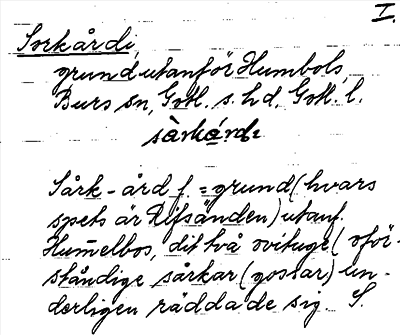 I.
Sorkårdi,
grund utanför Humbols,
Burs sn, Gotl. s. hd, Gotl. l.
sårkárdı
Sårk-ård f. = grund (hvars
spets är Rifsänden) utanf.
Hum̅elbos, dit två ovituge (oför-
ståndige sårkar (gossar) un-
derligen räddade sig. S.